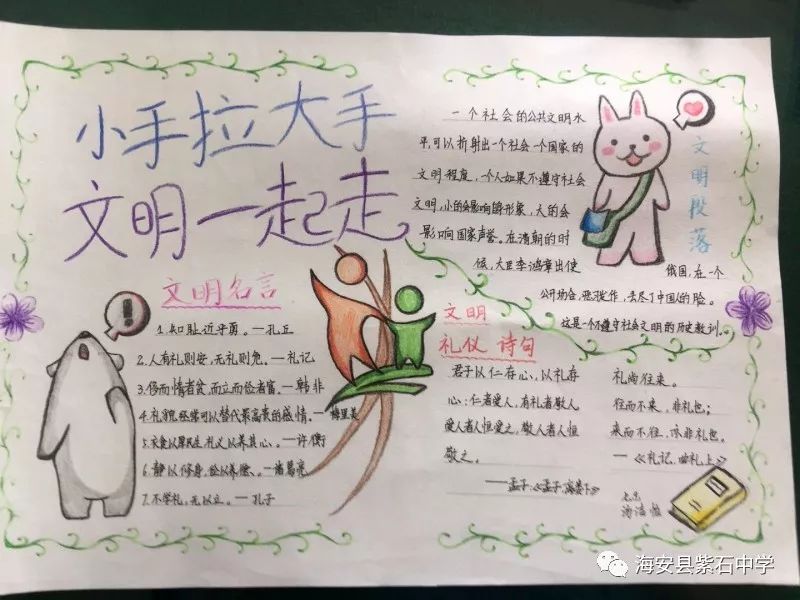 小手拉大手
文明一起走
一个社会的公共文明水
平,可以折射出一个社会一个国家的
文明程度,一个人如果不遵守社会
文明,小的会影响自身形象,大的会
影响国家声誉。在清朝的时
候,大臣李鸿章出使
俄国,在一个
公开场合,恶习发作,丢尽了中国人的脸。
这是一个不遵守社会文明的历史教训。
文明段落
文明名言
1.知耻近乎勇。—孔丘
2.人有礼则安,无礼则危。—礼记
3.侈而惰者贫,而力而俭者富。—韩非
4.礼貌经常可以替代最高贵的感情。—梅里美
5.衣食以厚民生,礼义以养其心。—许衡
6.静以修身,俭以养德。—诸葛亮
7.不学礼,无以立。—孔子
文明
礼仪 诗句
君子以仁存心,以礼存
心;仁者爱人,有礼者敬人
爱人者人恒爱之,敬人者人恒
敬之。
——孟子:《孟子·离娄下》
礼尚往来。
往而不来,非礼也;
来而不往,亦非礼也。
—《礼记·曲礼上》
海安县紫石中学